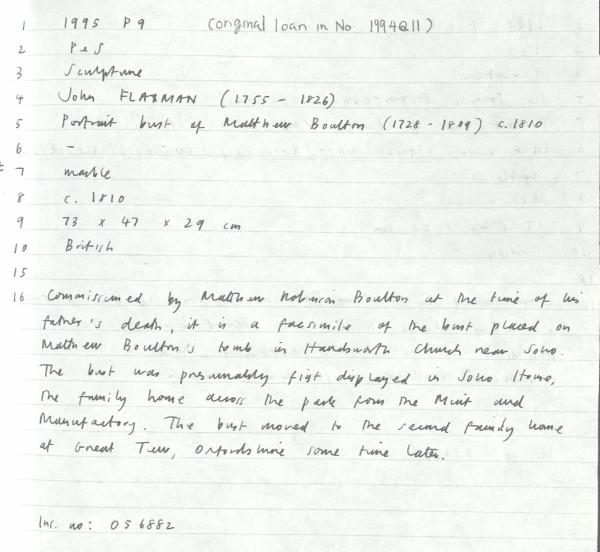 1 1995 P9 (original loan in No 1994Q11)
2 P & S
3 Sculpture
4 John FLAXMAN (1755 - 1826)
5 Portrait bust of Matthew Boulton (1728 - 1809) c.1810
6 -
7 marble
8 c. 1810
9 73 x 47 x 29 cm
10 British
15
16 Commissioned by Matthew Robinson Boulton at the time of his
father's death, it is a facsimile of the bust placed on
Matthew Boulton's tomb in Handsworth Church near Soho.
The bust was presumably first displayed in Soho House,
the family home across the park from the Mint and
Manufactory. The bust moved to the second family home
at Great Tew, Oxfordshire some time later.
Inc. no: 056882